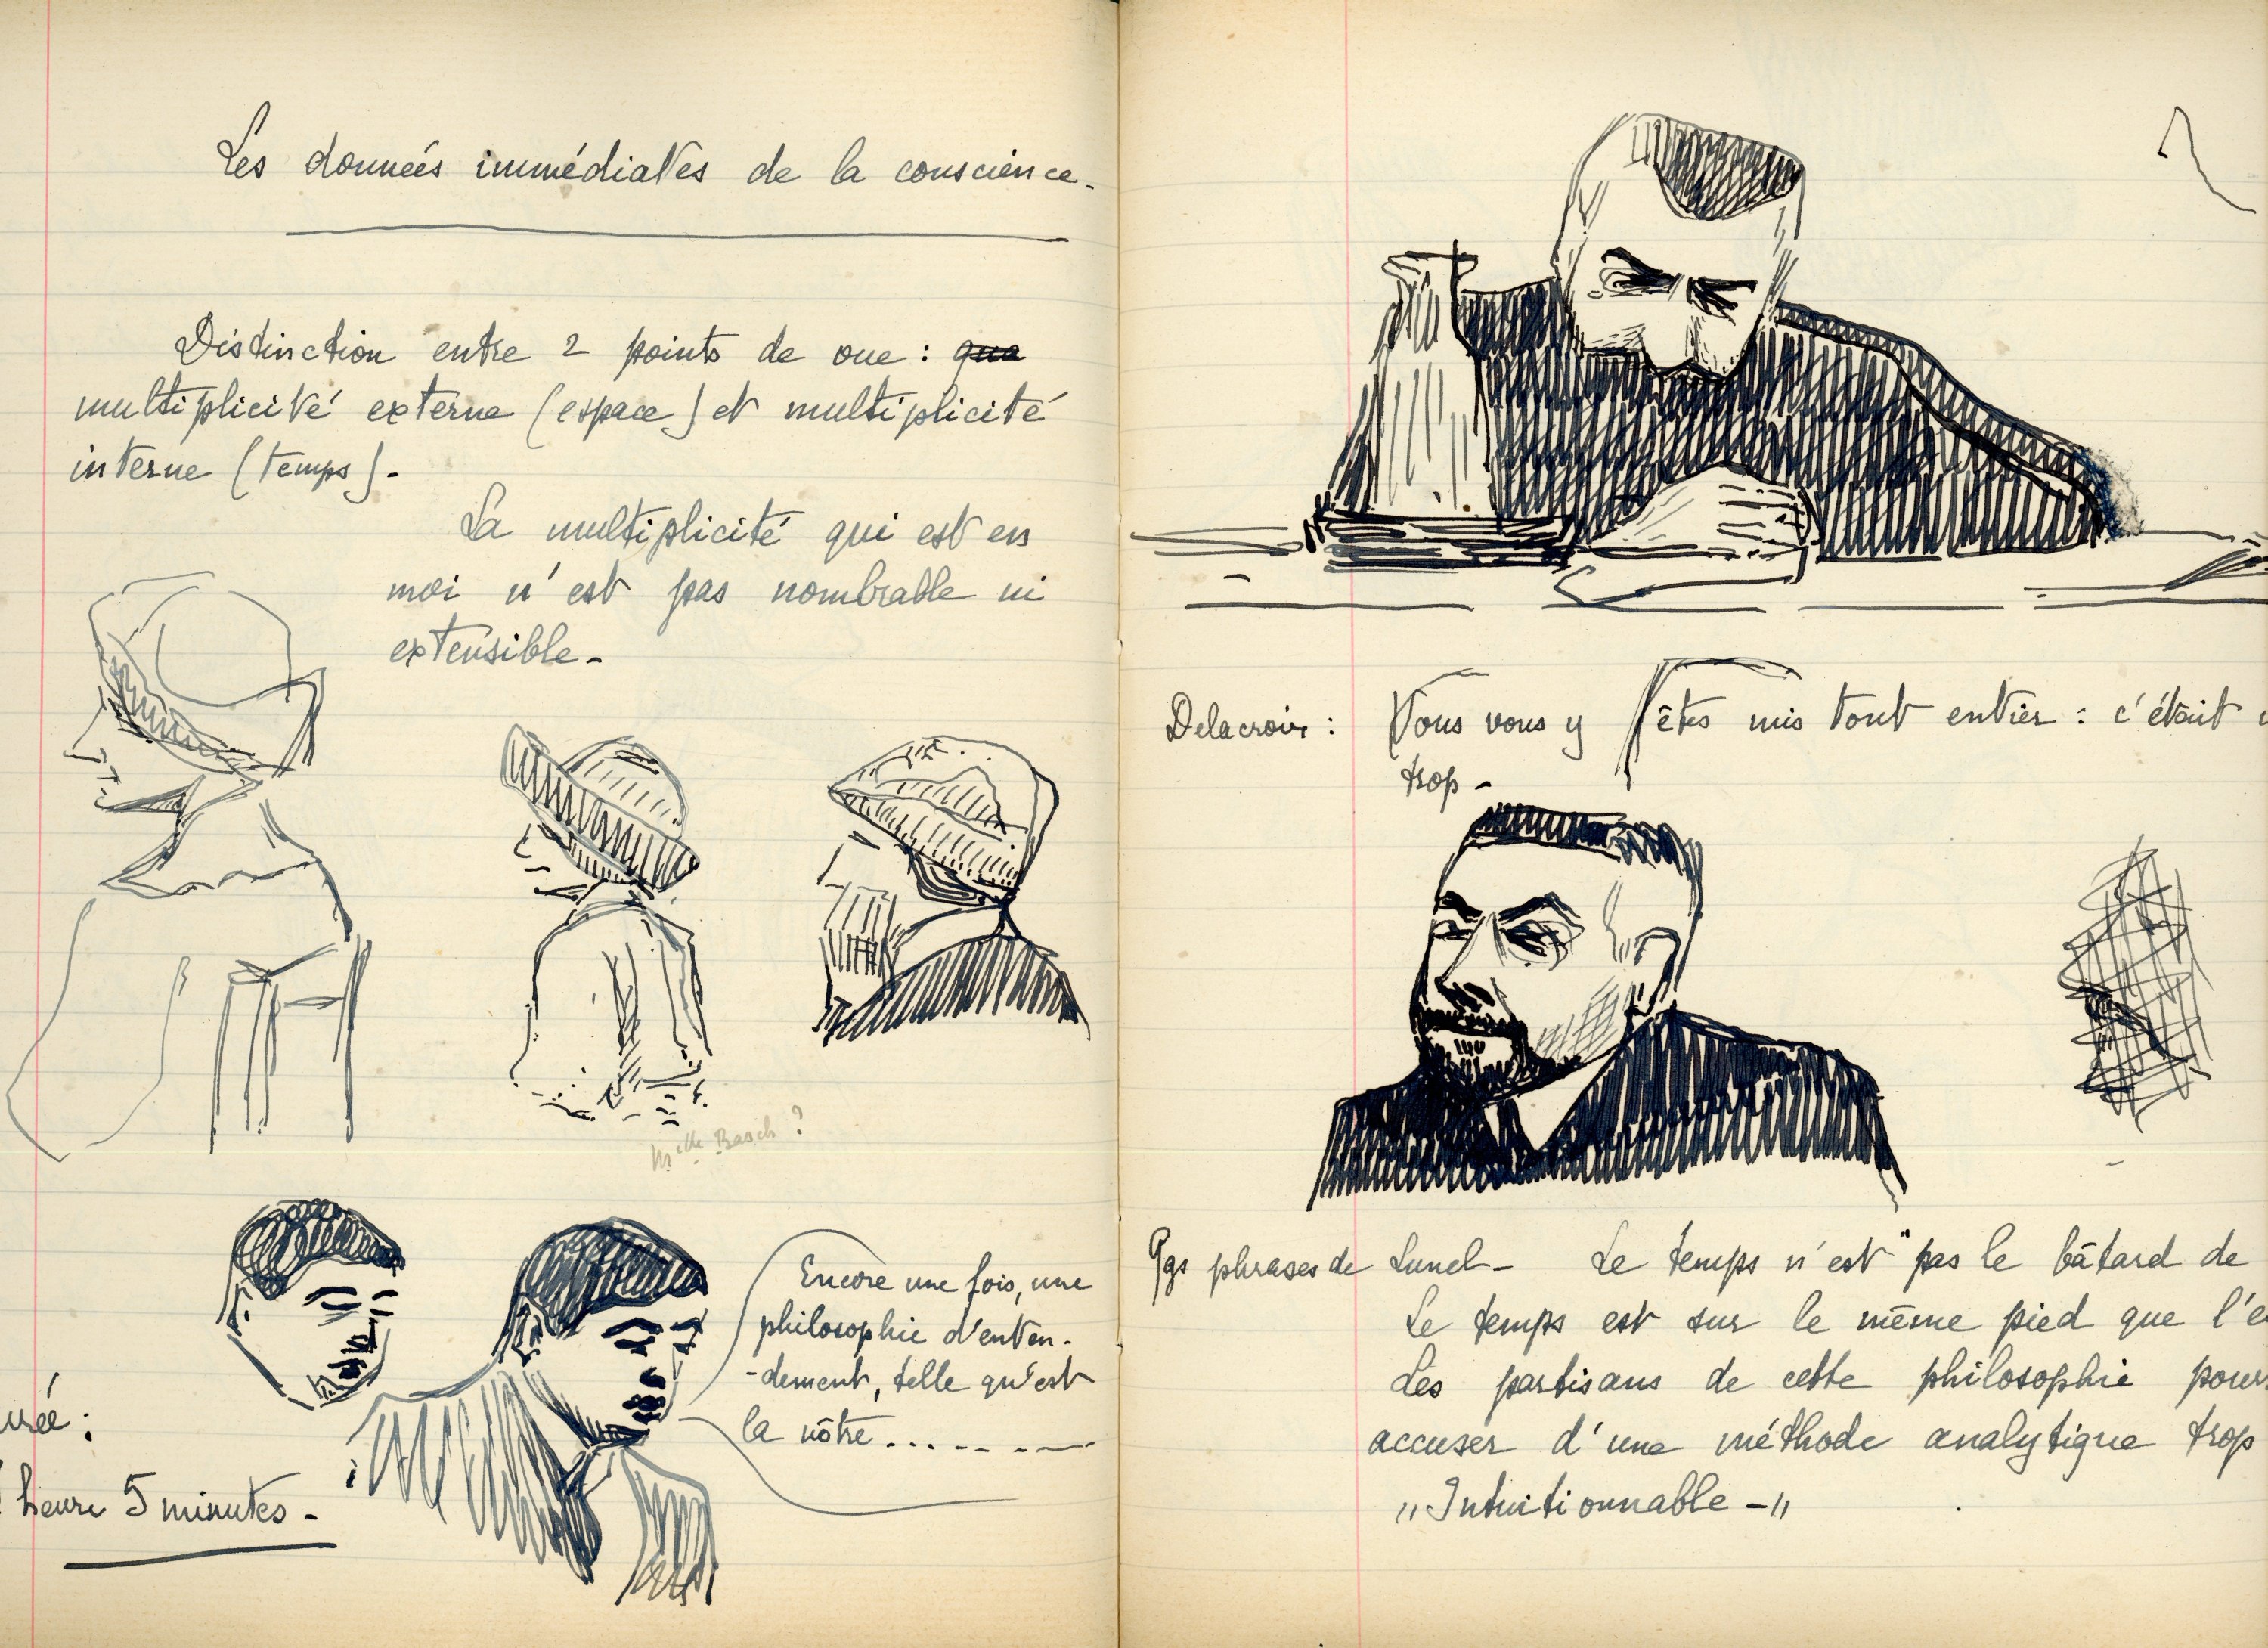 Les données immédiates de la conscience.
Distinction entre 2 points de vue : que
multiplicité externe (espace) et multiplicité
interne (temps).-
La multiplicité qui est en
moi n'est pas nombrable ni
extensible.-
Mlle Basch ?
Encore une fois, une
philosophie d'enten-
-dement, telle qu'est
la nôtre...........
rée :
heure 5 minutes -
Delacroix : Vous vous y êtes mis tout entier : c'était
trop -
Qqs phrases de Lunel - Le temps n'est pas le bâtard de
Le temps est sur le même pied que l'e
Les partisans de cette philosophie pour
accuser d'une méthode analytique trop
"Intuitionnable -"